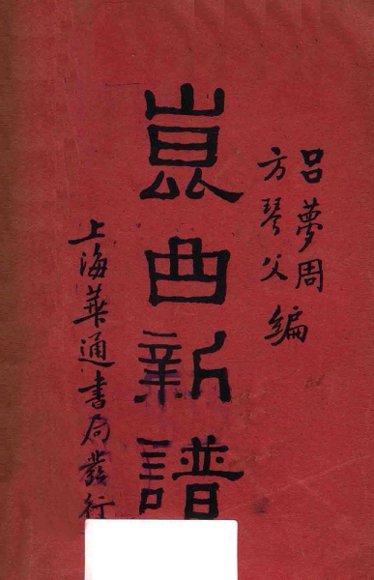 呂夢周
方琴父 編
崑曲新譜
上海華通書局發行